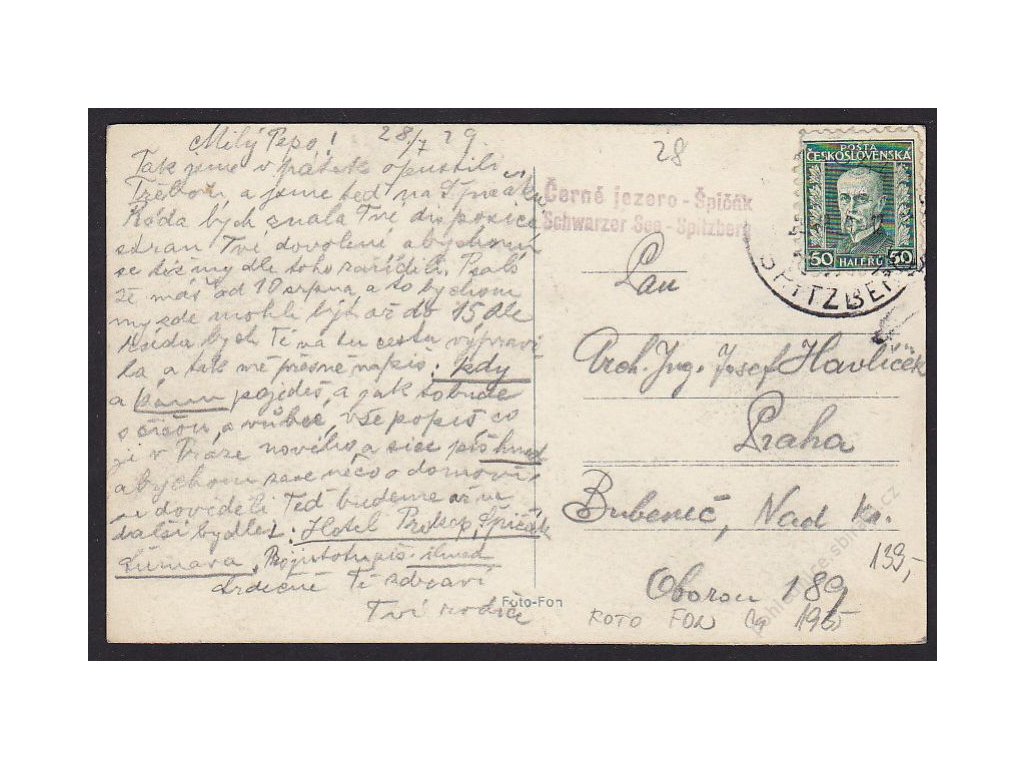 Milý Pepo! 28/7 29.
Tak jsme v pátek opustili
Třeboň a jsme teď na Špičáku
Ráda bych znala Tvé disposice
stran Tvé dovolené abychom
se též my dle toho zařídili. Psals
že máš od 10 srpna a to bychom
my zde mohli být až do 15 Ale
ráda bych Tě na tu cestu vypravi
la, a tak mě přesně napiš: kdy
a kam pojedeš, a jak to bude
a vůbec, vše popiš co
je v Praze nového, a sice piš hned
abychom zase něco o domově
dověděli Teď budeme
další bydle: Hotel Prokop, Špičák
Šumava. ihned
Srdečně Tě zdraví
Tví rodiče
Foto-Fon
28
Černé jezero - Špičák
Schwarzer See - Spitzberg
POŠTA
ČESKOSLOVENSKÁ
50 HALÉŘŮ 50
SPITZBERG
Pan
Arch. Ing. Josef Havlíček
Praha
Bubeneč, Nad Kr.
Oborou 189
139,-
FOTO FON
195